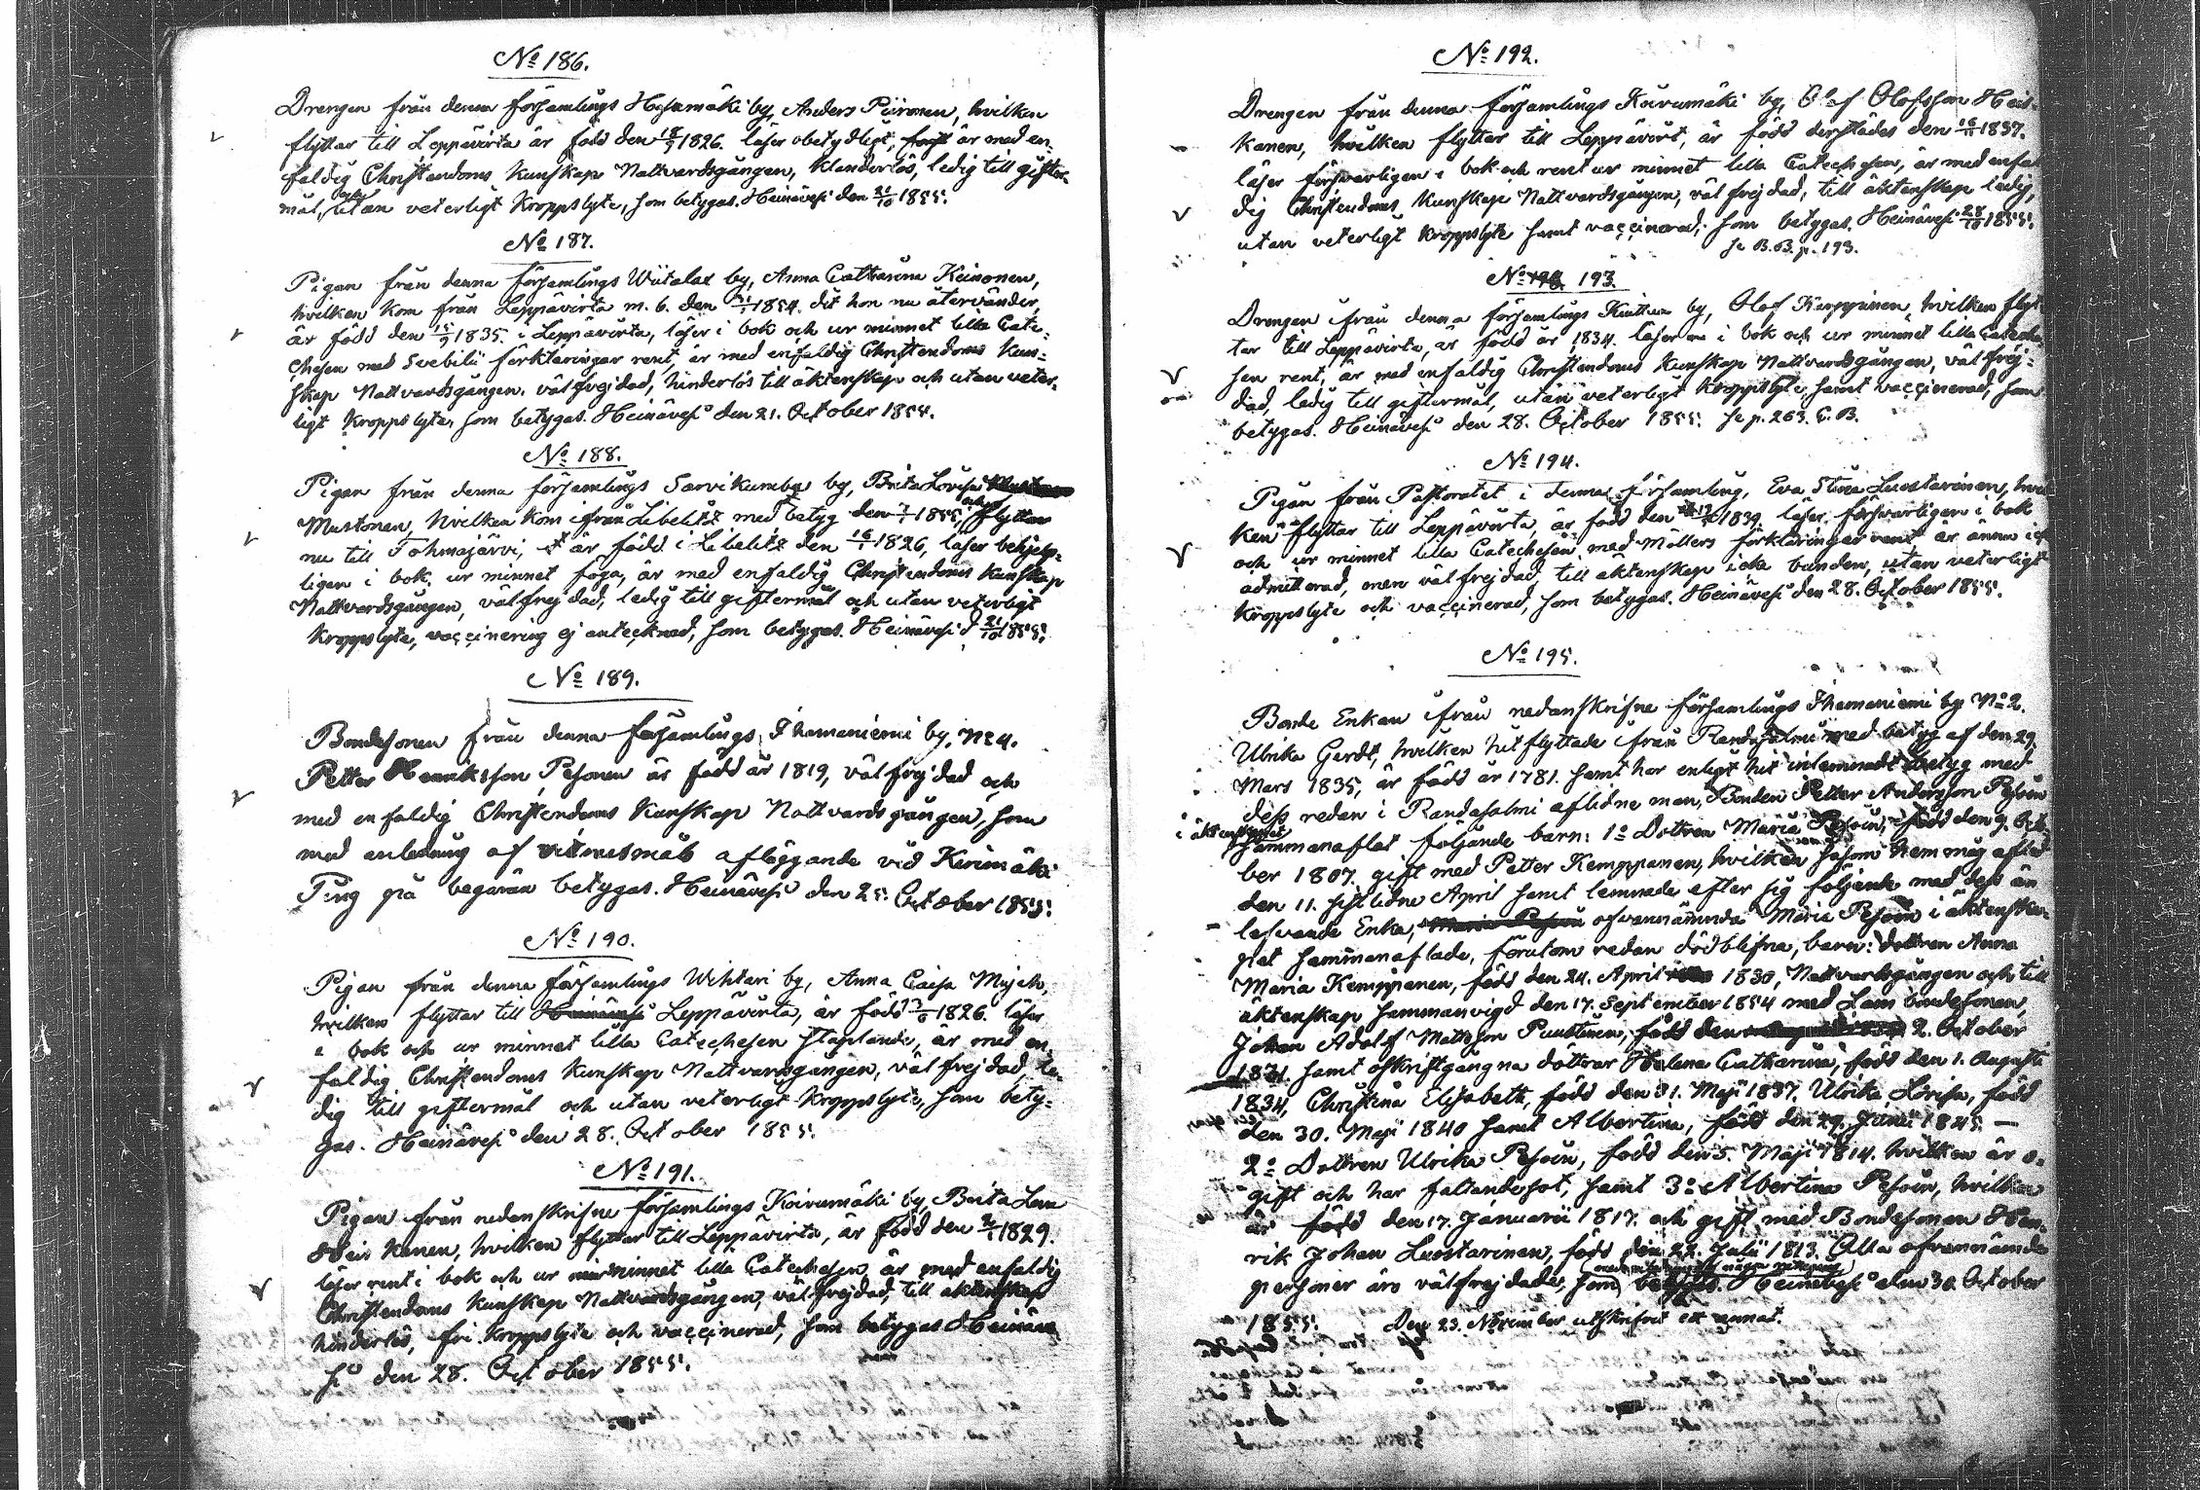 No 186.
Drengen från denna församlings Hasumäki by, Anders Piironen, hvilken
flyttar till Leppävirta är född den 18/5 1826. läser obetydligt, är med en-
faldig Christendoms kunskap Nattvardsgången, klanderlös, ledig till gifter-
mål, utan veterligt kroppslyte, som betygas. Heinävesi den 21/10 1855.
No 187.
Pigan från denna församlings Wiitalax by, Anna Catharina Keinonen,
hvilken kom från Leppävirta m. b. den 1854. dit hon nu återvänder,
är född den 15/9 1835. i Leppävirta, läser i bok och ur minnet lilla Cate-
chesen med Svebilii förklaringar rent, är med enfaldig Christendoms kun-
skap Nattvardsgången, välfrejdad, hinderlös till äktenskap och utan veter-
ligt kroppslyte, som betygas. Heinävesi den 21. October 1854.
No 188.
Pigan från denna församlings Sarvikumbu by, Brita Lovisa
Mustonen, hvilken kom ifrån Libelitz med betyg den 1855, och flyttar
nu till Tohmajärvi, är född i Libelitz den 16/1 1826, läser behjelp-
ligen i bok, ur minnet foga, är med enfaldig Christendoms kunskap
Nattvardsgången, välfrejdad, ledig till giftermål och utan veterligt
kroppslyte, vaccinering ej antecknad, som betygas. Heinävesi d 21/10 1855.
No 189.
Bondesonen från denna församlings Ihamaniemi by, No 4.
Petter Henriksson Pesonen är född år 1819, välfrejdad och
med enfaldig Christendoms kunskap Nattvardsgången, som
med anledning af vittnesmåls afläggande vid Kerimäki
Ting på begäran betygas. Heinävesi den 25. October 1855.
No 190.
Pigan från denna församlings Wihtari by, Anna Caisa Mujeh,
hvilken flyttar till Leppävirta, är född 1826. läser
i bok och ur minnet lilla Catechesen staplande, är med en-
faldig Christendoms kunskap Nattvardsgången, välfrejdad, le-
dig till giftermål och utan veterligt kroppslyte, som bety-
gas. Heinävesi den 28. October 1855.
No 191.
Pigan från nedanskrifne församlings Koivumäki by, Brita Lena
Heiskanen, hvilken flyttar till Leppävirta, är född den 1829.
läser rent i bok och ur minnet lilla Catechesen, är med enfaldig
Christendoms kunskap Nattvardsgången, välfrejdad, till äktenskap
hinderlös, fri kroppslyte och vaccinerad, som betygas Heinäve-
si den 28. October 1855.
No 192.
Drengen från denna församlings Koivumäki by, Olof Olofsson Heis-
kanen, hvilken flyttar till Leppävirt, är född derstädes den 1837.
läser försvarligen i bok och rent ur minnet lilla Catechesen, är med enfal-
dig Christendoms kunskap Nattvardsgången, välfrejdad, till äktenskap ledig,
utan veterligt kroppslyte samt vaccinerad, som betygas. Heinävesi 28/10 1855.
Se B.B. p. 193.
No 193.
Drengen ifrån denna församlings by, Olof Karppinen, hvilken flyt-
tar till Leppävirta, är född år 1834. läser i bok och ur minnet lilla Cateche-
sen rent, är med enfaldig Christendoms kunskap Nattvardsgången, välfrej-
dad, ledig till giftermål, utan veterligt kroppslyte, samt vaccinerad, som
betygas. Heinävesi den 28. October 1855. Se p. 263. C.B.
No 194.
Pigan från Pastoratet i denna församling, Eva Stina Luostarinen, hvil-
ken flyttar till Leppävirta, är född den 1839. läser försvarligen i bok
och ur minnet lilla Catechesen med Möllers förklaringar rent är ännu ick
admitterad, men välfrejdad, till äktenskap icke bunden, utan veterligt
kroppslyte och vaccinerad, som betygas. Heinävesi den 28. October 1855.
No 195.
Bonde Enkan ifrån nedanskrifne församlings Ihamaniemi by No 2.
Ulrika Gerdt, hvilken hitflyttade ifrån Randasalmi med betyg af den 29.
Mars 1835, är född år 1781. samt har enligt hit inlemnadt betyg med
dess redan i Randasalmi aflidne man, Bonden Petter Andersson Pesoin
i äktenskapet
sammanaflat följande barn: 1o Dottren Maria Pesoin, född den 9. Octo-
ber 1807. gift med Petter Kemppanen, hvilken såsom hemmåg afled
den 11. sistlidne April samt lemnade efter sig följande med dess än
lefvande Enka, ofvannämnda Maria Pesoin i äktenska-
pet sammanaflade, förutom redan dödblifna, barn: dottren Anna
Maria Kemppanen, född den 24. April 1830, Nattvardsgången och till
äktenskap sammanvigd den 17. September 1854 med Lam bondesonen,
Johan Adolf Mattsson Puustinen, född den 2. October
1831. samt oskriftgångna döttrar Helena Catharina, född den 1. Augusti
1834, Christina Elisabeth, född den 31. Maji 1837, Ulrika Lovisa, född
den 30. Maji 1840 samt Albertina, född den 29. Junii 1845. —
2o Dottren Ulrika Pesoin, född den 5. Maji 1814. hvilken är o-
gift och har fallandesot, samt 3o Albertina Pesoin, hvilken
är född den 17. Januarii 1817. och gift med Bondesonen Hen-
rik Johan Luostarinen, född den 22. Julii 1813. Alla ofvannämnda
personer äro välfrejdade, som betygas. Heinävesi den 30. October
1855. Den 23. November utskrifvit ett annat.